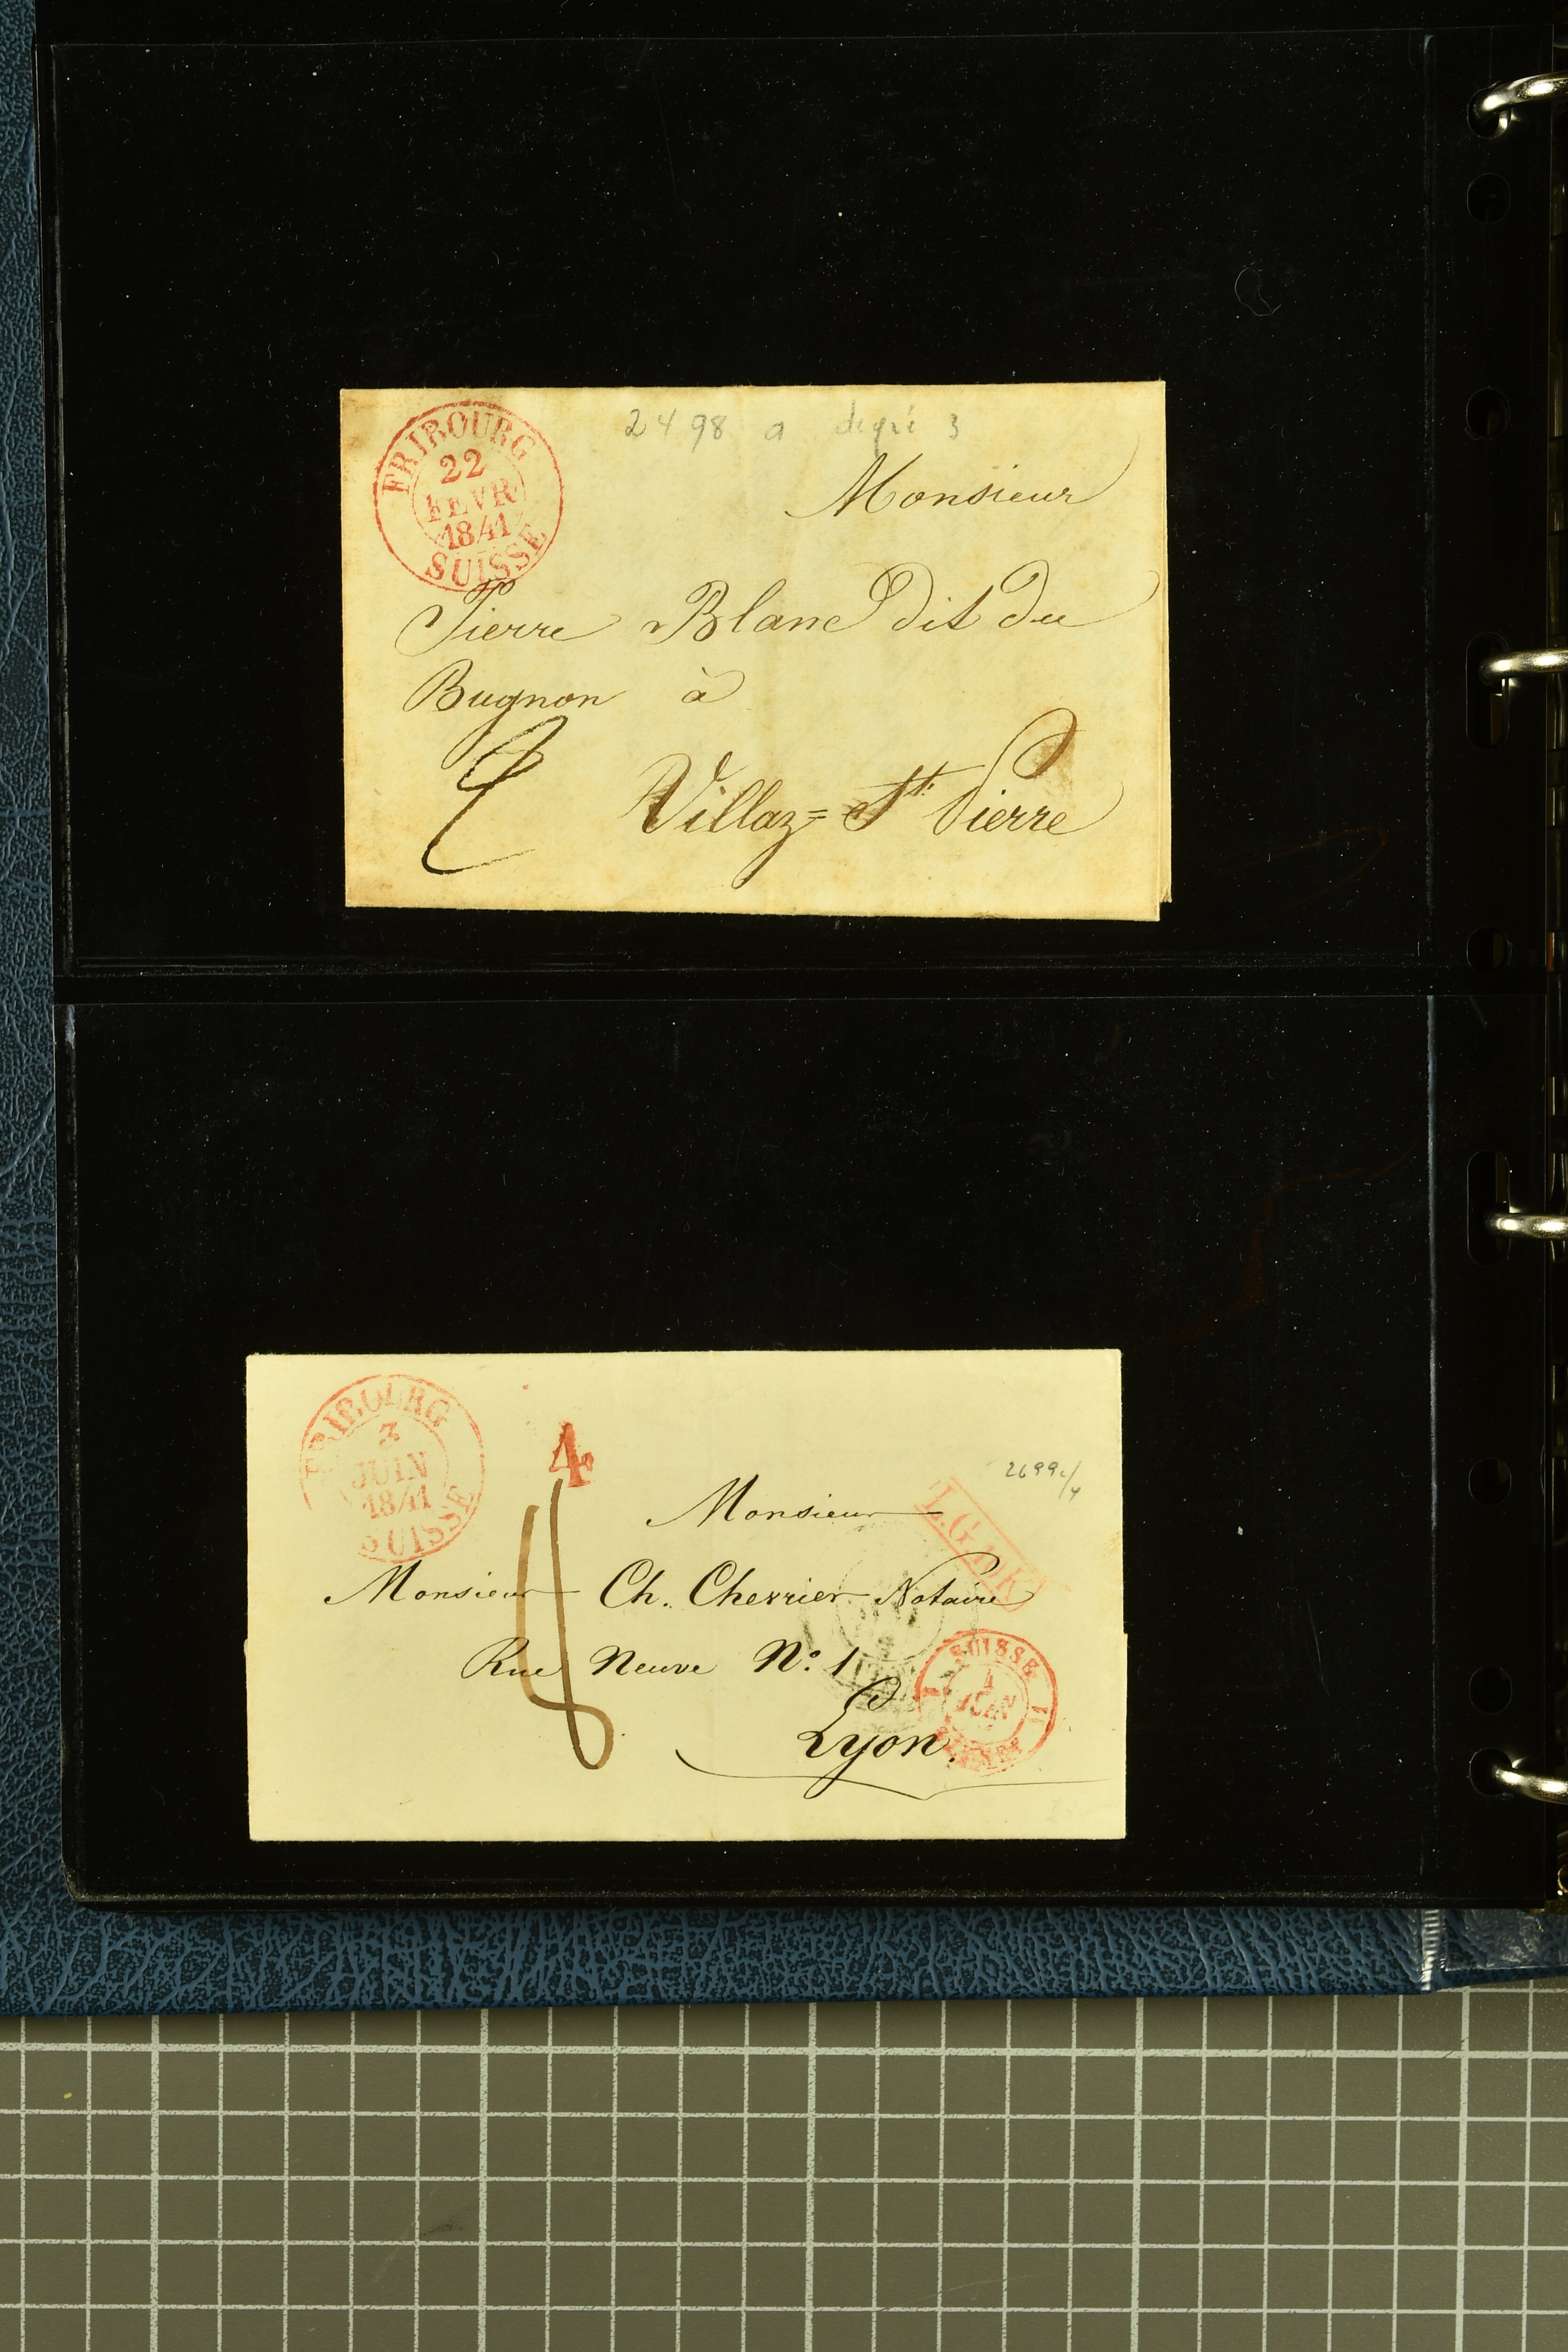 FRIBOURG
22
FEVR
1841
SUISSE
2498 a degré 3
Monsieur
Pierre Blanc dit du
Bugnon à
Villaz=St. Pierre
FRIBOURG
3
JUIN
1841
SUISSE
4
2699
L.G.
Monsieur
Monsieur Ch. Cherrier Notaire
Rue Neuve N.º 1
Lyon.
SUISSE
4
JUIN